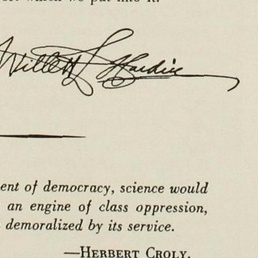 which we put into it.
Willett L. Hardin
ent of democracy, science would
an engine of class oppression,
demoralized by its service.
—HERBERT CROLY.